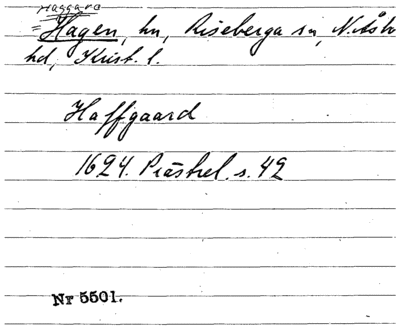 Haggard
= Hagen, hn, Riseberga sn, N. Åsbo
hd, Krist. l.
Haffgaard
1624. Präsrel. s. 42
Nr 5501.